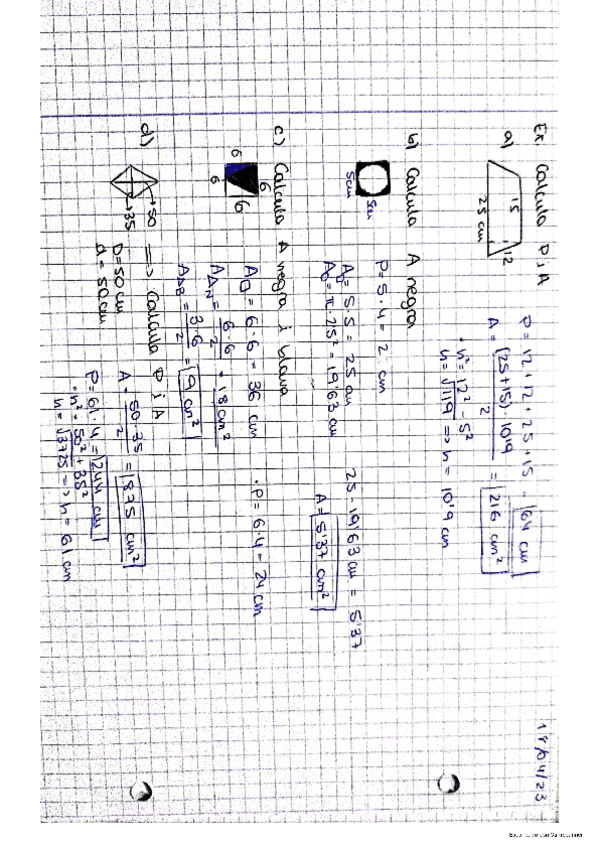 18/04/23
Ex. Calcula P i A
a) 15 12 25 cm
P = 12 + 12 + 25 + 15 = 64 cm
A = (25+15) · 10'9 / 2 = 216 cm²
· h² = 12² - 5²
h = √119 => h = 10'9 cm
b) Calcula A negra
5cm 5cm
P = 5 · 4 = 2 cm
A = 5 · 5 = 25 cm
A = π · 2'5² = 19'63 cm
25 - 19'63 cm = 5'37
A = 5'37 cm²
c) Calcula A negra i blava
6 6 6 6
A□ = 6 · 6 = 36 cm
· P = 6·4 = 24 cm
A△N = 6·6 / 2 = 18 cm²
A△B = 3·6 / 2 = 9 cm²
d) 50 35 => Calcula P i A
D = 50 cm
d = 50 cm
A = 50·35 / 2 = 875 cm²
P = 61 · 4 = 244 cm
· h² = 50² + 35²
h = √3725 => h = 61 cm